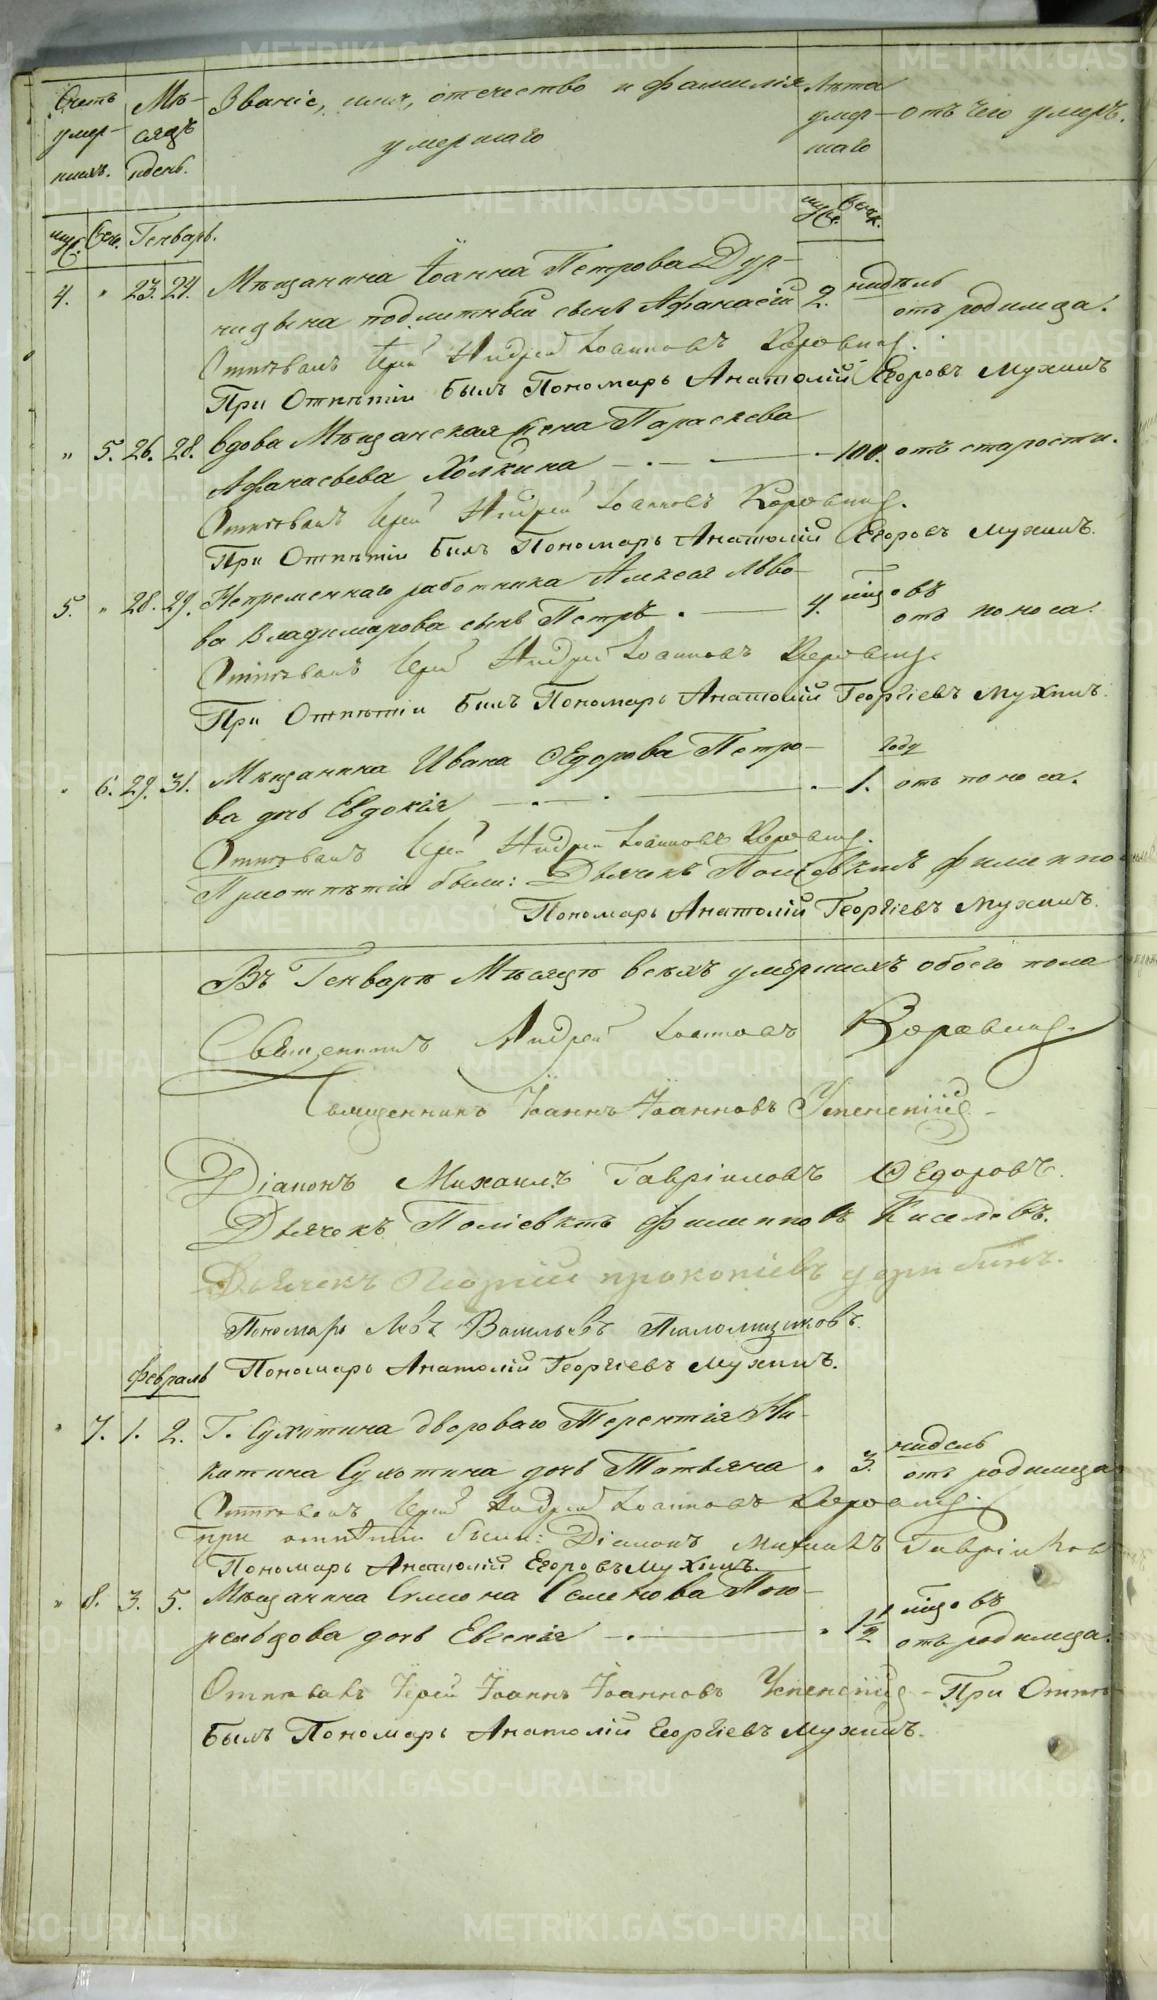 Счетъ Мѣ- Званіе, имя, отечество и фамилія Лѣта
умер- сяцъ умершаго умер- отъ чего умеръ.
шихъ. и день. шаго
муж. жен. Генварь. муж. жен.
4. " 23. 24. Мѣщанина Іоанна Петрова
сынъ Афанасій 2. недѣль
отъ родимца.
Отпѣвалъ Іерей Андрей Іоанновъ Коровинъ.
При Отпѣтіи былъ Пономарь Анатолій Егоровъ Мухинъ
" 5. 26. 28. Вдова Мѣщанская жена Параскева
Афанасьева Холкина 100. отъ старости.
Отпѣвалъ Іерей Андрей Іоанновъ Коровинъ.
При Отпѣтіи былъ Пономарь Анатолій Егоровъ Мухинъ.
5. " 28. 29. Непременнаго работника Алексея Льво-
ва Владимирова сынъ Петръ. 4. мцовъ
отъ поноса.
Отпѣвалъ Іерей Андрей Іоанновъ Коровинъ.
При Отпѣтіи былъ Пономарь Анатолій Георгіевъ Мухинъ.
" 6. 29. 31. Мѣщанина Ивана Ѳедорова Петро-
ва дочь Евдокія 1. году
отъ поноса.
Отпѣвалъ Іерей Андрей Іоанновъ Коровинъ.
При отпѣтіи были: Дьячекъ Поліевктъ Филиппо
Пономарь Анатолій Георгіевъ Мухинъ.
Въ Генварѣ Мѣсяцѣ всѣхъ умершихъ обоего пола
Священникъ Андрей Іоанновъ Коровинъ.
Священникъ Іоаннъ Іоанновъ Успенскій
Діаконъ Михаилъ Гавріиловъ Ѳедоровъ.
Дьячекъ Поліевктъ Филипповъ Киселевъ.
Дьячекъ Георгій Прокопіевъ
Пономарь Левъ Васильевъ
Февраль
Пономарь Анатолій Георгіевъ Мухинъ.
" 7. 1. 2. Г. Сухотина двороваго Терентія Ни-
китина Сухотина дочь Татьяна " 3. недель
отъ родимца
Отпѣвалъ Іерей Андрей Іоанновъ Коровинъ.
при отпѣтіи были: Діаконъ Михаилъ Гавріилов
Пономарь Анатолій Егоровъ Мухинъ.
" 8. 3. 5. Мѣщанина Симеона Семенова
дочь Евгенія " 1½ мцовъ
отъ родимца.
Отпѣвалъ Іерей Іоаннъ Іоанновъ Успенскій При Отпѣ
былъ Пономарь Анатолій Георгіевъ Мухинъ.
METRIKI.GASO-URAL.RU